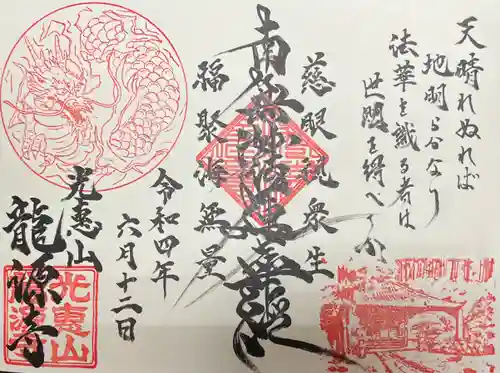 天晴れぬれば
地明らかなり
法華を識る者は
世間を得べきか
慈眼視衆生
南無妙法蓮華経
福聚海無量
令和四年
六月十二日
光恵山
龍源寺
光恵山
龍源寺